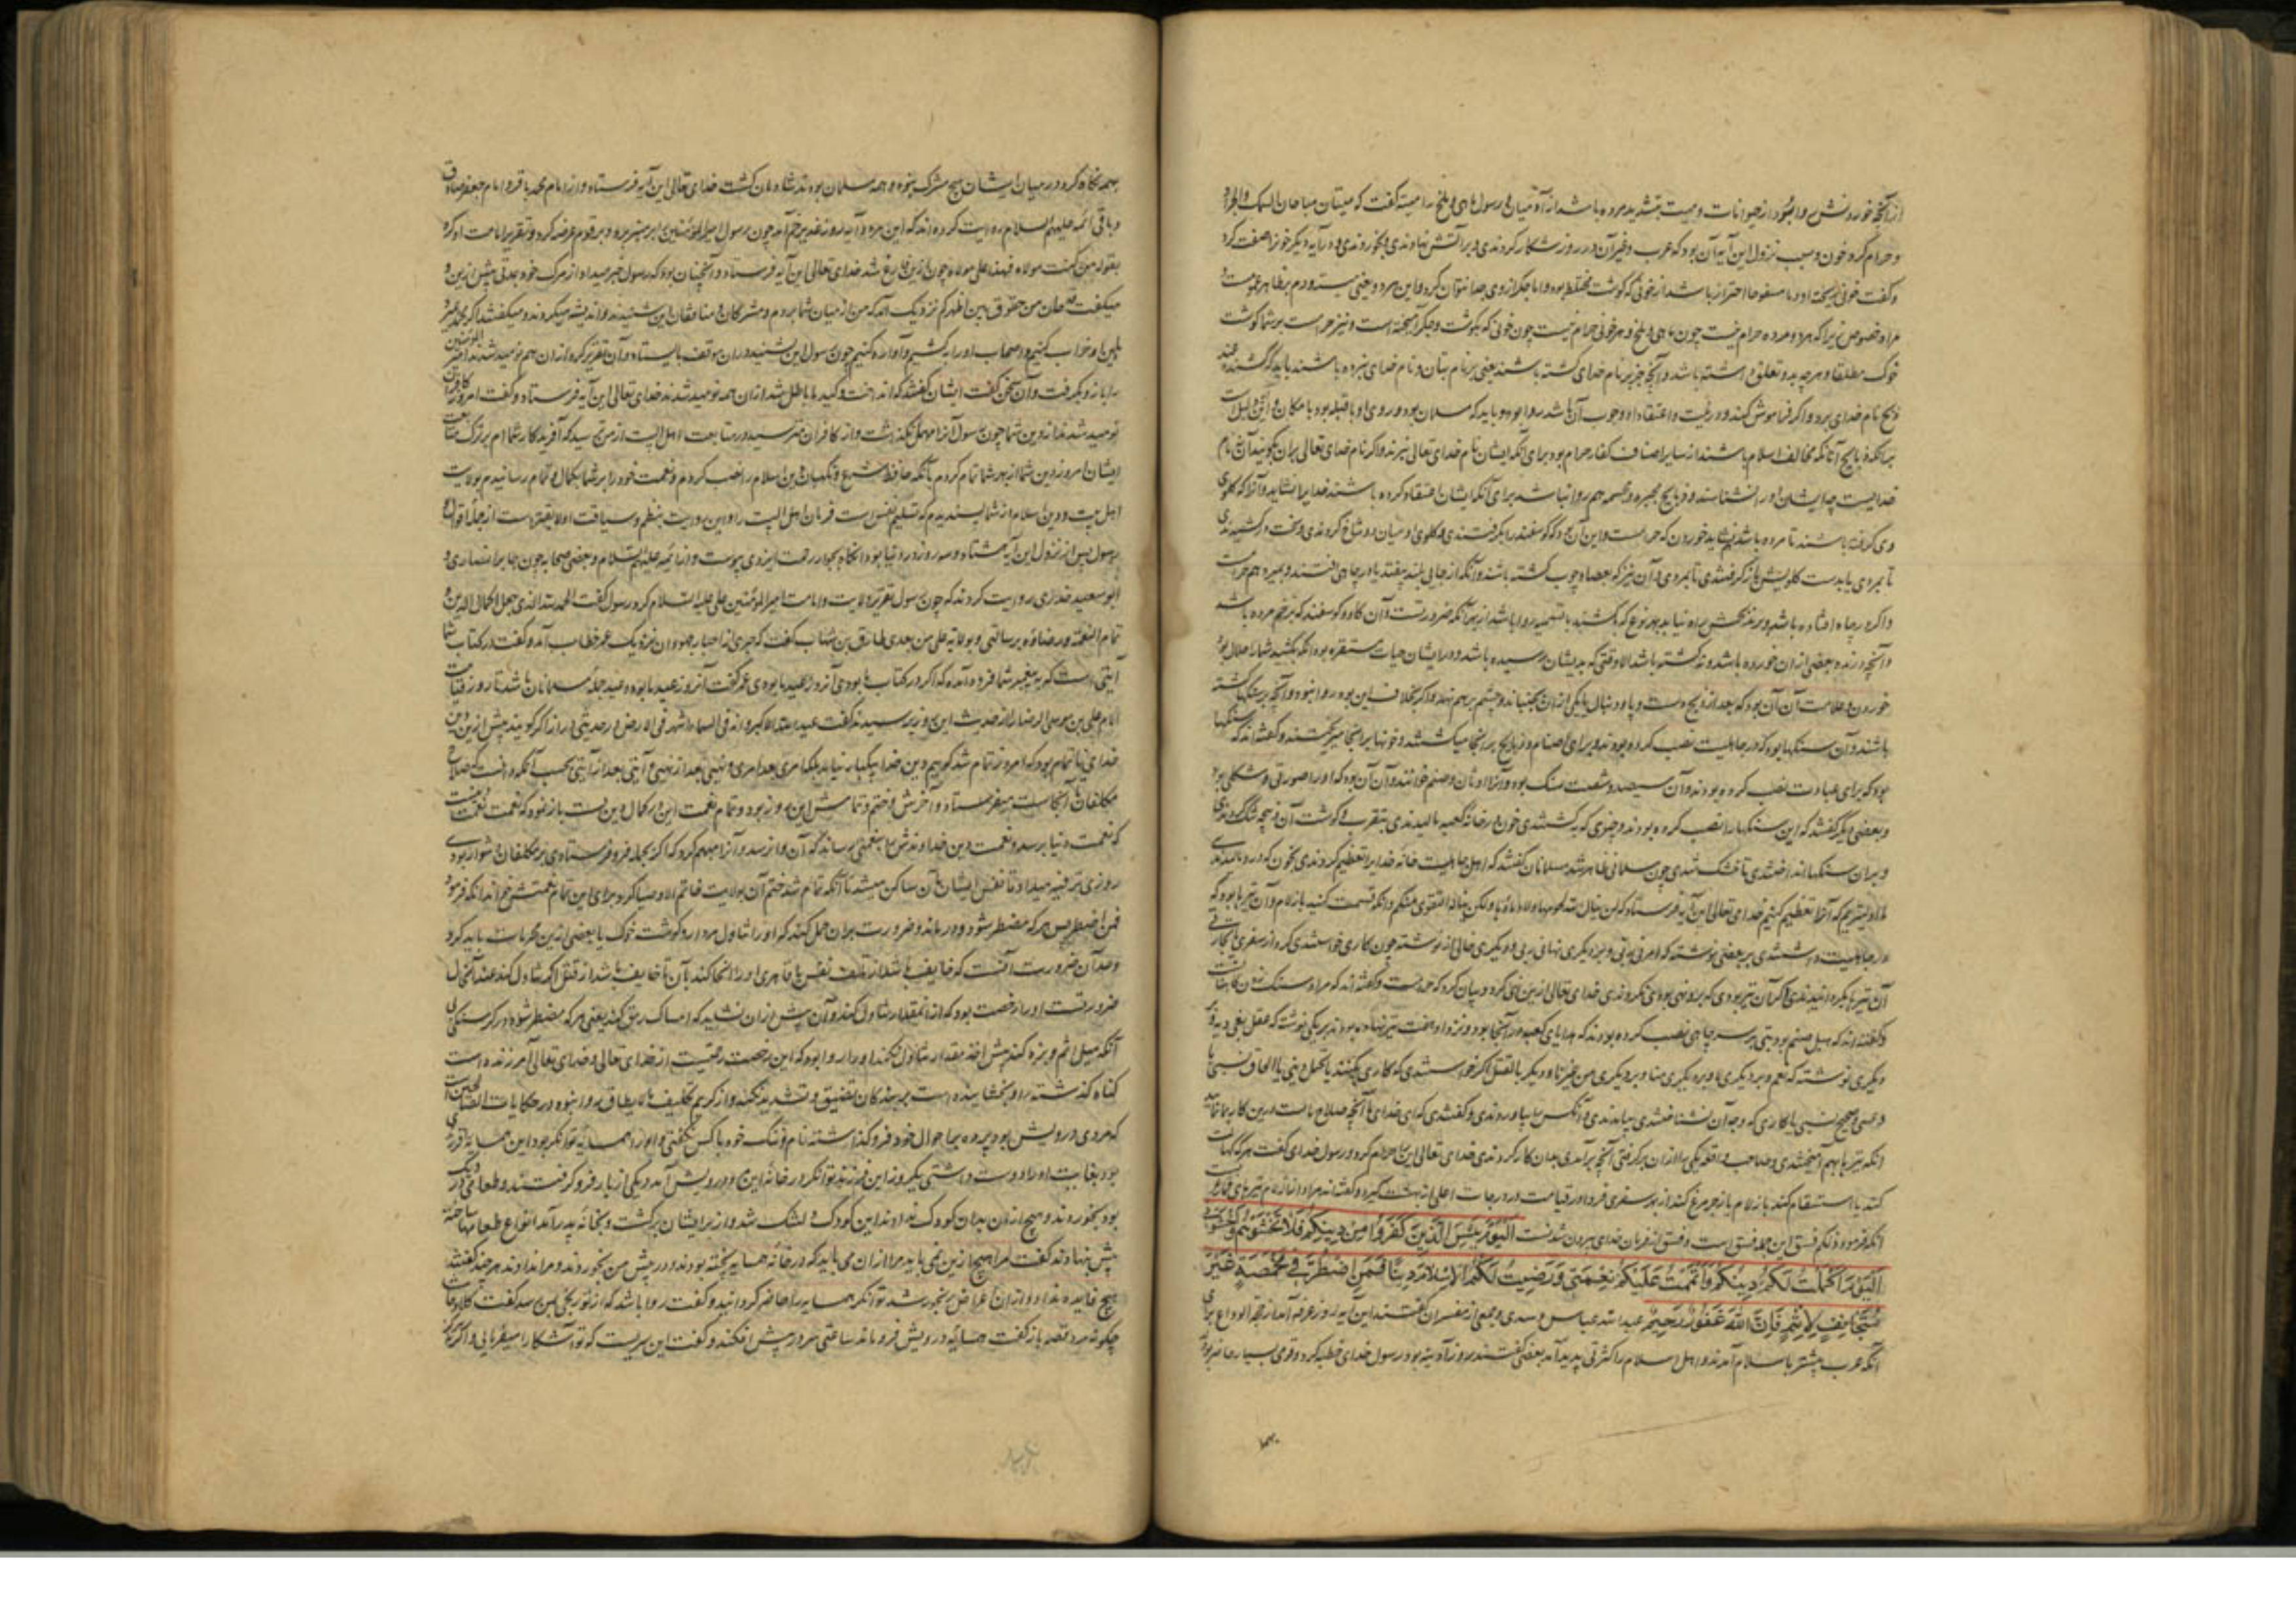 از آنچه خوردنش را بشود از حیوانات و میت بتشدید مرده باشد از آدمیان و رسول ماهی و ملخ را میته گفت که میتان مباحان السمک والجراد
و حرام کرد خون و سبب نزول این آیه آن بود که عرب و غیر آن در روز شکار کردندی و بر آتش نهادندی و بخوردندی و در آیه دیگر خونرا صفت کرد
و گفت خونی ریخته او دما مسفوحا احتراز باشد از خونی که گوشت مختلط بود و اما جگر از وی جدا نتوان کرد و این هر دو یعنی میته و دم بظاهر عموم است
مراد خصوص زیرا که هر مرده حرام نیست چون ماهی و ملخ و هر خونی حرام نیست چون خونی که بگوشت و جگر آمیخته است و نیز حرامست بر شما گوشت
خوک مطلقا و هر چه بدو تعلق داشته باشد و آنچه جز بر نام خدای کشته باشند یعنی بر نام بتان و نام خدای نبرده باشند باید که کشنده عند
ذبح نام خدای برد و اگر فراموش کند و در نیت و اعتقاد او وجوب آن باشد روا بود و باید که مسلمان بود و روی او با قبله بود با مکان و این دلیل است
بر آنکه ذبایح آنانکه مخالف اسلام باشند از سایر اصناف کفار حرام بود برای آنکه ایشان نام خدای تعالی نبرند و اگر نام خدای تعالی بران گویند آن نام
خدا نیست چه ایشان او را نشناسند و ذبایح مجبره و مجسمه هم روا نباشد برای آنکه ایشان اعتقاد کرده باشند خدایرا نشاید و آنرا که گلوی
وی گرفته باشند تا مرده باشد نشاید خوردن که حرامست و این آن بود که گوسفند را بگرفتندی و گلوی او میان دو شاخ کردندی و سخت در کشیدندی
تا بمردی یا بدست گلویش باز گرفتندی تا بمردی و آن نیز که بعصا و چوب کشته باشند و آنکه از جایی بلند بیفتد یا در چاهی افتند و بمیرد هم حرامست
و اگر در چاه افتاده باشد و بر ذبحش راه نیابد بهر نوع که بکشند با تسمیه روا باشد از بهر آنکه ضرورتست و آن گاو و گوسفند که بزخم مرده باشد
و آنچه درنده بعضی از ان خورده باشد و بکشته باشد الا وقتی که بدیشان رسیده باشد و در ایشان حیات مستقره بود آنکه بکشید شما را حلال بود
خوردن و علامت آن آن بود که بعد از ذبح دست و پا و دنبال یا یکی از ان بجنباند و چشم بر هم نهد و اگر بخلاف این بود روا نبود و آنچه بر سنگها کشته
باشند و آن سنگها بود که در جاهلیت نصب کرده بودند و برای اصنام و ذبایح بر انجا میکشتند و خونها بر انجا میریختند و گفته اند که سنگها
بود که برای عبادت نصب کرده بودند و آن سیصد و شصت سنگ بود و آنرا اوثان و صنم خوانند و آن آن بود که او را صورتی و شکلی بود
و بعضی دیگر گفتند که این سنگها را نصب کرده بودند و چیزی که بکشتندی خون او بر خانه کعبه مالیدندی بتقرب و گوشت آن ذبیحه خشک کردندی
و بران سنگها انداختندی تا خشک شدی چون مسلمانی ظاهر شد مسلمانان گفتند که اهل جاهلیت خانه خدایرا تعظیم کردندی بخون که در او مالیدندی
ما اولیتریم که آنرا تعظیم کنیم خدای تعالی این آیه فرستاد که لن ینال الله لحومها ولا دماؤها ولکن یناله التقوی منکم و آنکه قسمت کنید بازلام و آن تیرها بود که
در جاهلیت داشتندی بر بعضی نوشته که امرنی ربی و بر دیگری نهانی ربی و دیگری خالی از نوشته چون کاری خواستندی کرد از سفری یا تجارتی
آن تیرها بگردانیدندی اگر آن تیر بودی که برو نهی بودی نکردندی خدای تعالی ازین نهی کرد و بیان کرد که حرامست و گفته اند که مراد سنگ
و گفته اند که هبل صنم بود بتی بر سر چاهی نصب کرده بودند که هدایای کعبه در آنجا بود و نزد او هفت تیر نهاده بودند بر یکی نوشته که عقل یعنی دیه و بر
دیگری نوشته که نعم و بر دیگری لا و بر دیگری منکم و بر دیگری من غیرکم و دیگر بالعقل اگر خواستندی که کاری بکنند یا تحمل دیتی یا الحاق نسبی یا
دعی صحیح نسبی یا کاری که وجه آن نشناختندی بیامدندی و آنکس را بیاوردندی و گفتندی که ای خدای ما آنچه صلاح ماست درین کار بما نمای
آنکه تیرها بهم آمیختندی و صاحب واقعه یکی را از ان بر گرفتی آنچه بر آمدی بدان کار کردندی خدای تعالی این را حرام کرد و رسول خدای گفت هر که کهانت
کند یا استقسام کند بازلام یا زجر مرغ کند از بهر سفری فردا در قیامت در درجات اعلی از بهشت نگیرد و گفته اند مراد از ازلام تیرهای قمارست
آنکه فرمود ذلکم فسق این جمله فسق است و فسق از فرمان خدای بیرون شدنست اَلْیَوْمَ یَئِسَ الَّذِینَ کَفَرُوا مِنْ دِینِکُمْ فَلَا تَخْشَوْهُمْ وَاخْشَوْنِ
اَلْیَوْمَ اَکْمَلْتُ لَکُمْ دِینَکُمْ وَاَتْمَمْتُ عَلَیْکُمْ نِعْمَتِی وَرَضِیتُ لَکُمُ الْاِسْلَامَ دِینًا فَمَنِ اضْطُرَّ فِی مَخْمَصَةٍ غَیْرَ
مُتَجَانِفٍ لِاِثْمٍ فَاِنَّ اللّٰهَ غَفُورٌ رَحِیمٌ عبد الله عباس و سدی و جمعی از مفسران گفتند این آیه روز عرفه آمد از حجة الوداع برای
آنکه عرب بیشتر باسلام آمدند و اهل اسلام را کثرتی پدید آمد بعضی گفتند روز آدینه بود رسول خدای خطبه کرد و قومی بسیار حاضر بود
بهمه
بهمه نگاه کرد در میان ایشان هیچ مشرک نبود و همه مسلمان بودند شادمان گشت خدای تعالی این آیه فرستاد و از امام محمد باقر و امام جعفر صادق
و باقی ائمه علیهم السلام روایت کرده اند که این مرد و آیه روز غدیر خم آمد چون رسول امیر المؤمنین را بر منبر برد و بر قوم عرضه کرد و تقریر امامت او کرد
بقوله من کنت مولاه فهذا علی مولاه چون ازین فارغ شد خدای تعالی این آیه فرستاد و آنچنان بود که رسول خبر میداد از مرگ خود بمدتی پیش ازین و
میگفت قد حان من حقوق بین اظهرکم نزدیک آمد که من از میان شما بروم و مشرکان و منافقان این شنیدند و اندیشه میکردند و میگفتند اگر محمد بمیرد
دین او خراب کنیم و اصحاب او را بکشیم و آواره کنیم چون رسول این بشنید در ان موقف بایستاد و آن تقریر کرد از ان هم نومید شدند امیر المؤمنین
را بازو بگرفت و آن سخن گفت ایشان گفتند که انداخت و کید ما باطل شد از ان همه نومید شدند خدای تعالی این آیه فرستاد و گفت امروز کافران
نومید شدند از دین شما چون رسول آنرا مهمل نگذاشت و از کافران مترسید در متابعت اهل البیت از من بترسید که آفریدگار شما ام بر ترک متابعت
ایشان امروز دین شما از بهر شما تمام کردم بآنکه حافظ شرع و نگهبان دین اسلام را نصب کردم و نعمت خود را بر شما بکمال و تمام رسانیدم بولایت
اهل بیت و دین اسلام از شما پسندیدم که تسلیم نفس است فرمان اهل البیت را و این روایت بنظم و سیاقت اولا لایقترست از جمله اقوال و
رسول پس از نزول این آیه هشتاد و سه روز در دنیا بود آنگاه بجوار رحمت ایزدی پیوست و از ائمه علیهم السلام و بعضی صحابه چون جابر انصاری و
ابو سعید خدری روایت کردند که چون رسول تقریر ولایت و امامت امیر المؤمنین علی علیه السلام کرد رسول گفت الحمد لله الذی جعل اکمال الدین و
تمام النعمة و رضاؤه برسالتی و بولایة علی من بعدی طارق بن شهاب گفت که حبری از احبار جهودان نزدیک عمر خطاب آمد و گفت در کتاب شما
آیتی است که به پیغمبر شما فرود آمده که اگر در کتاب ما بودی آنروز عید ما بودی عمر گفت آنروز عید ما بود و عید جمله مسلمانان باشد تا روز قیامت
امام علی بن موسی الرضا را از حدیث این روز پرسیدند گفت عید الله الاکبر و انه فی السماء اشهر فی الارض و حدیثی دراز اگر گویند پیش ازین دین
خدای ناتمام بود که امروز تمام شد گوییم دین خدا بیکبار نیامد بلکه امری بعد امری و نهیی بعد از نهیی و آیتی بعد از آیتی بحسب آنکه دانست که صلاح
مکلفان آنجاست میفرستاد و آخرش و ختم و تمامش این روز بود و تمام نعمت این در کمال دین بست باز نمود که نعمت نعمت
که نعمت دنیا برسد و نعمت دین خداوندش را بنعمتی رساند که آن وا نرسد و آنرا مبهم کرد که اگر بجمله فرو فرستادی بر مکلفان دشوار بودی
روزی ترقیه میداد تا نفس ایشان بآن ساکن میشد تا آنکه تمام شد ختم آن بولایت خاتم الاوصیا کرد برای این تمام نعمتش خواند آنکه فرمود
فمن اضطر پس هر که مضطر شود و درماند و ضرورت بران حمل کند که او را تناول مردار و گوشت خوک یا بعضی ازین محرمات باید کرد
و حد آن ضرورت آنست که خایف باشد از تلف نفس یا قاهری او را الجا کند بآن تا خایف باشد از قتل اگر تناول کند عند آنحال
ضرورتست او را رخصت بود که از ان مقدار تناول کند و آن بیش از ان نشاید که امساک رمق کند یعنی هر که مضطر شود در گرسنگی بی
آنکه میل اثم و بزه کند بیش از حد بقدار تناول نکند او را روا بود که این رخصت رحمتیست از خدای تعالی و خدای تعالی آمرزنده است
گناه گذشته را و بخشاینده است بر بندگان تضییق و تشدید نکند و از کریم تکلیف ما لا یطاق روا نبود و در حکایات الصالحین است
که مردی درویش بود پرده بر احوال خود فرو گذاشته نام و ننگ خود با کس نگفتی و او را همسایه توانگر بود این همسایه را فرزندی
بود بغایت او را دوست داشتی یکروز این فرزند توانگر در خانه این درویش آمد دیگی از بار فرو گرفتند و طعامی در دیگ
بود بخوردند و هیچ از ان بدان کودک ندادند این کودک دلتنگ شد و از بر ایشان برگشت و بخانه پدر آمد انواع طعامها ساخته
پیش نهادند گفت مرا هیچ ازین نمی باید مرا از ان می باید که در خانه همسایه پخته بودند و در پیش من بخوردند و مرا ندادند هر چند گفتند
هیچ فایده نداد و از ان اعراض رنجور شد توانگر همسایه را حاضر گردانید و گفت روا باشد که از تو رنجی بمن رسد گفت کلا و حاشا
چگونه مرد قصه باز گفت همسایه درویش فرو ماند ساعتی سر در پیش افکند و گفت این سریست که تو آشکارا میفرمایی و اگر نه